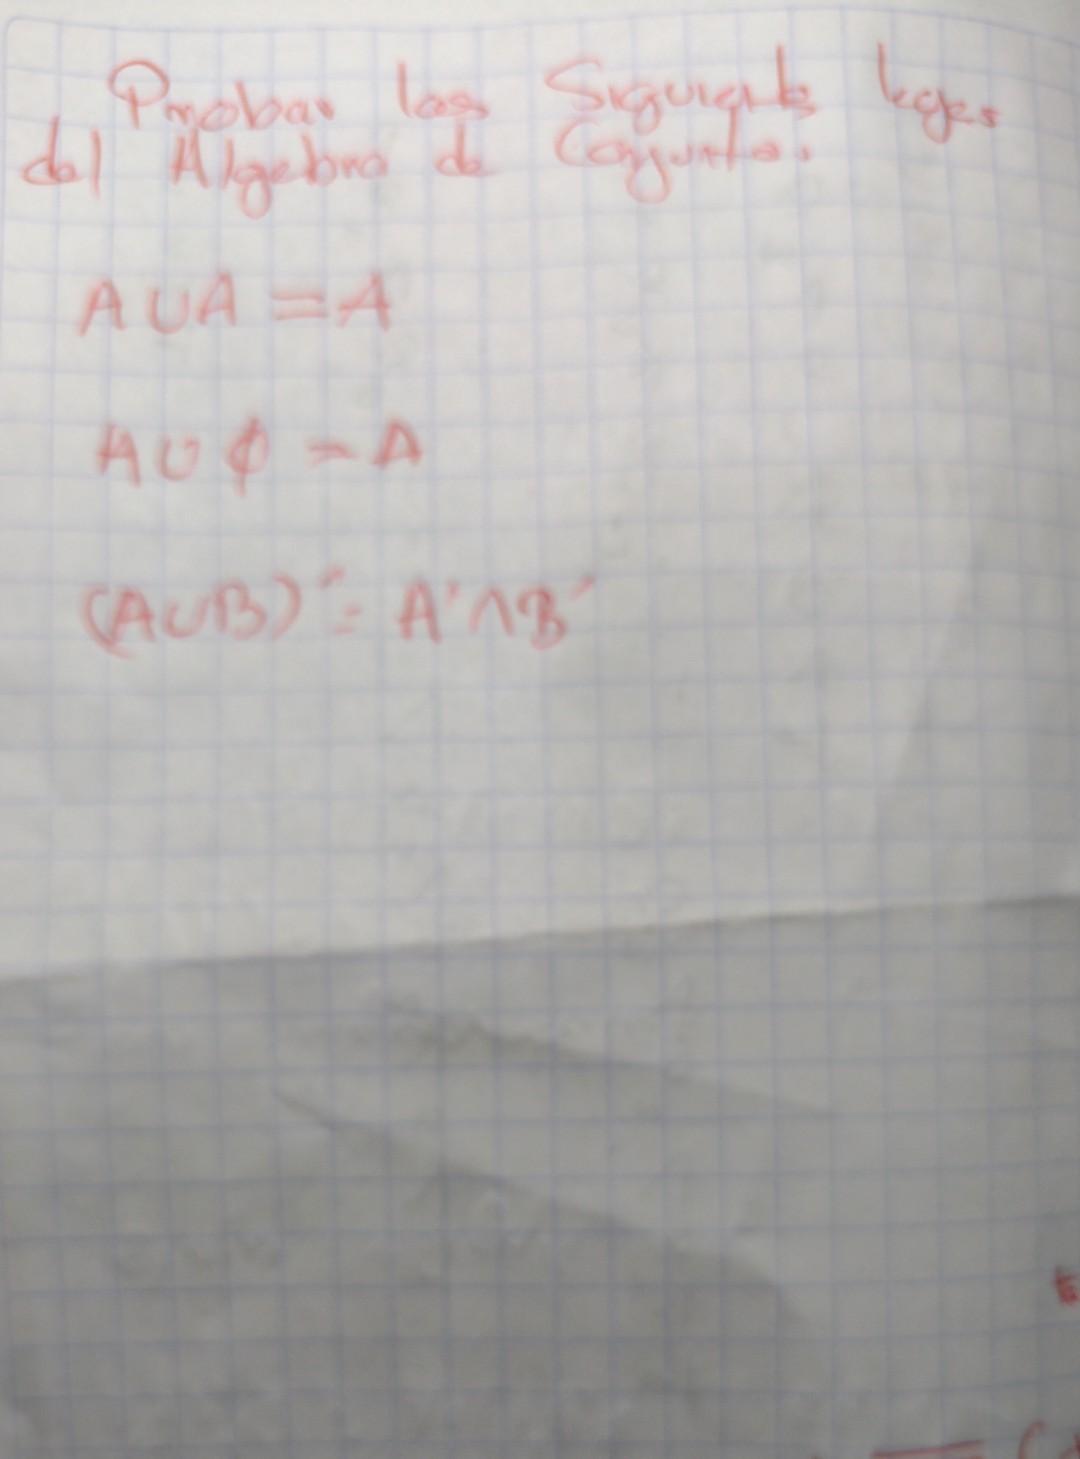 Probar las Siguiente leyes
del Algebra de Conjuntos.
A ∪ A = A
A ∪ ϕ = A
(A∪B)' = A' ∩ B'